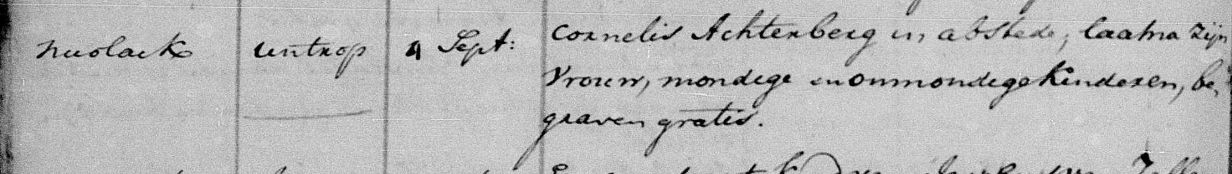 nuolack untrop 4 Sept: Cornelis Achterberg in abstede, laat na zijn
Vrouw, mondege en onmondege Kinderen, be,
graven gratis.